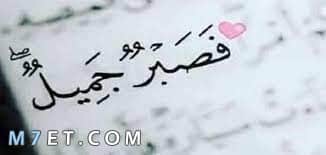 فَصَبْرٌ جَمِيلٌ ۖ
M7ET.COM